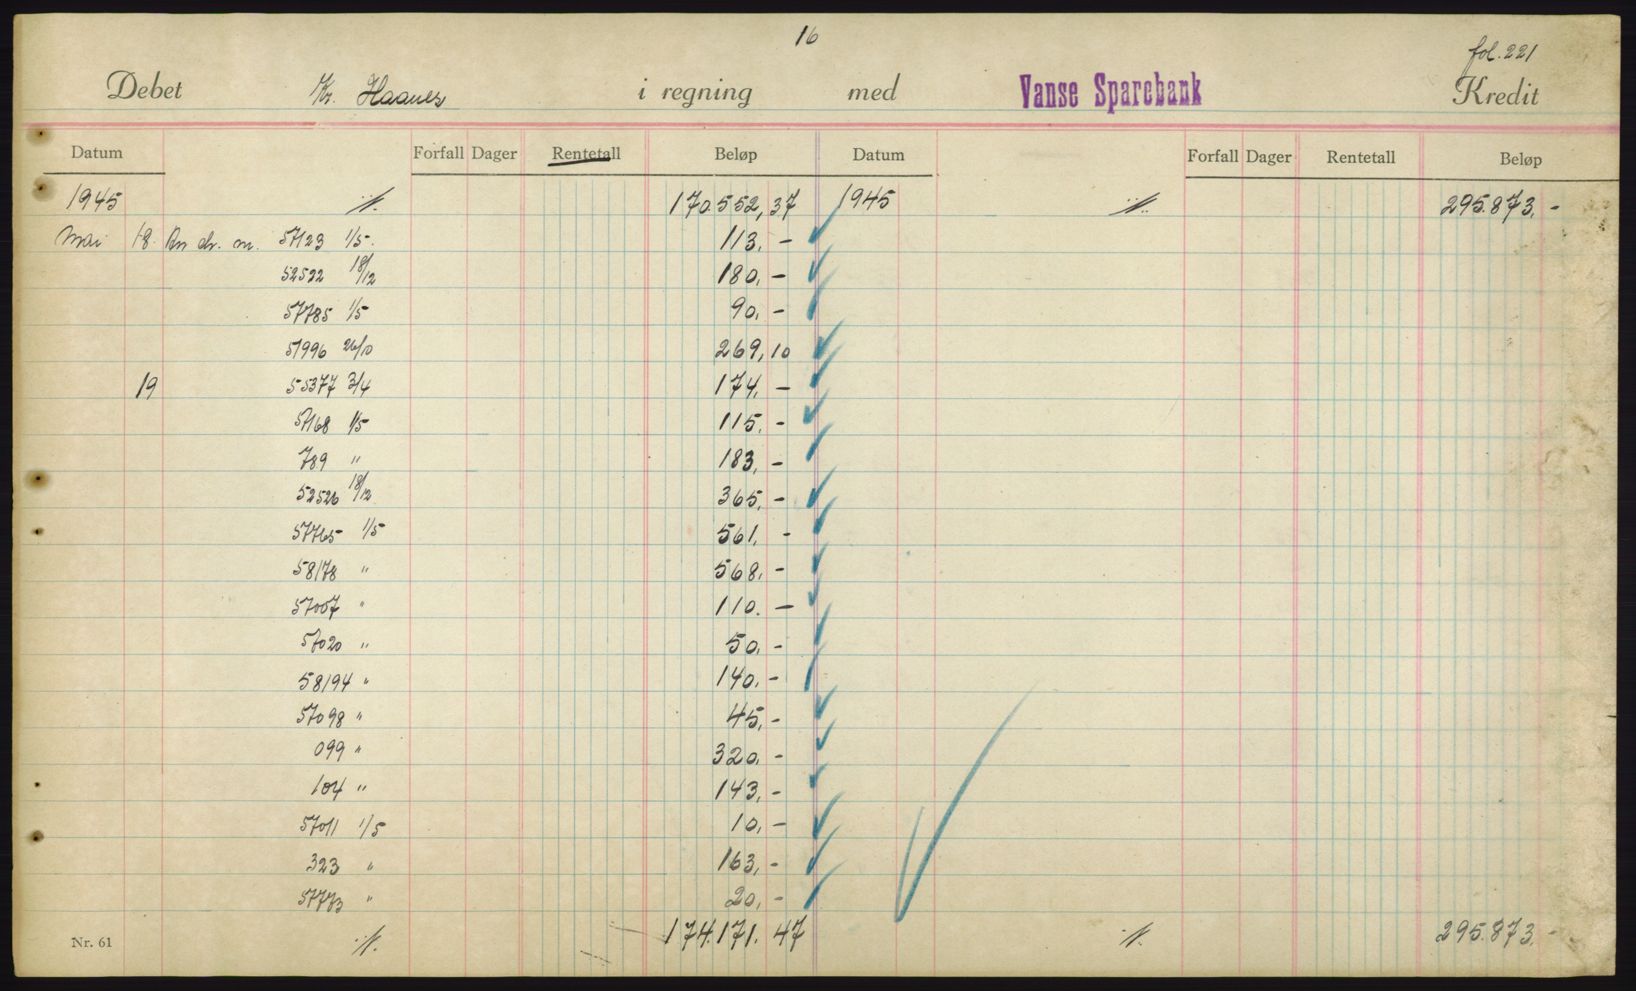 16
fol. 221
Debet Kr. Haanes i regning med Vanse Sparebank Kredit
Datum Forfall Dager Rentetall Beløp Datum Forfall Dager Rentetall Beløp
1945 170.552,37 1945 295.873,-
Mai 18. An chr. on. 57123 1/5 113,-
52522 18/12 180,-
57785 1/5 90,-
51996 26/10 269,10
19 55377 3/4 174,-
57168 1/5 115,-
789 " 183,-
52526 18/12 365,-
57765 1/5 561,-
58178 " 568,-
57007 " 110.-
57020 " 50,-
58194 " 140,-
57098 " 45,-
099 " 320,-
104 " 143,-
57011 1/5 10,-
323 " 163,-
57773 " 20,-
Nr. 61 174.171.47 295.873,-